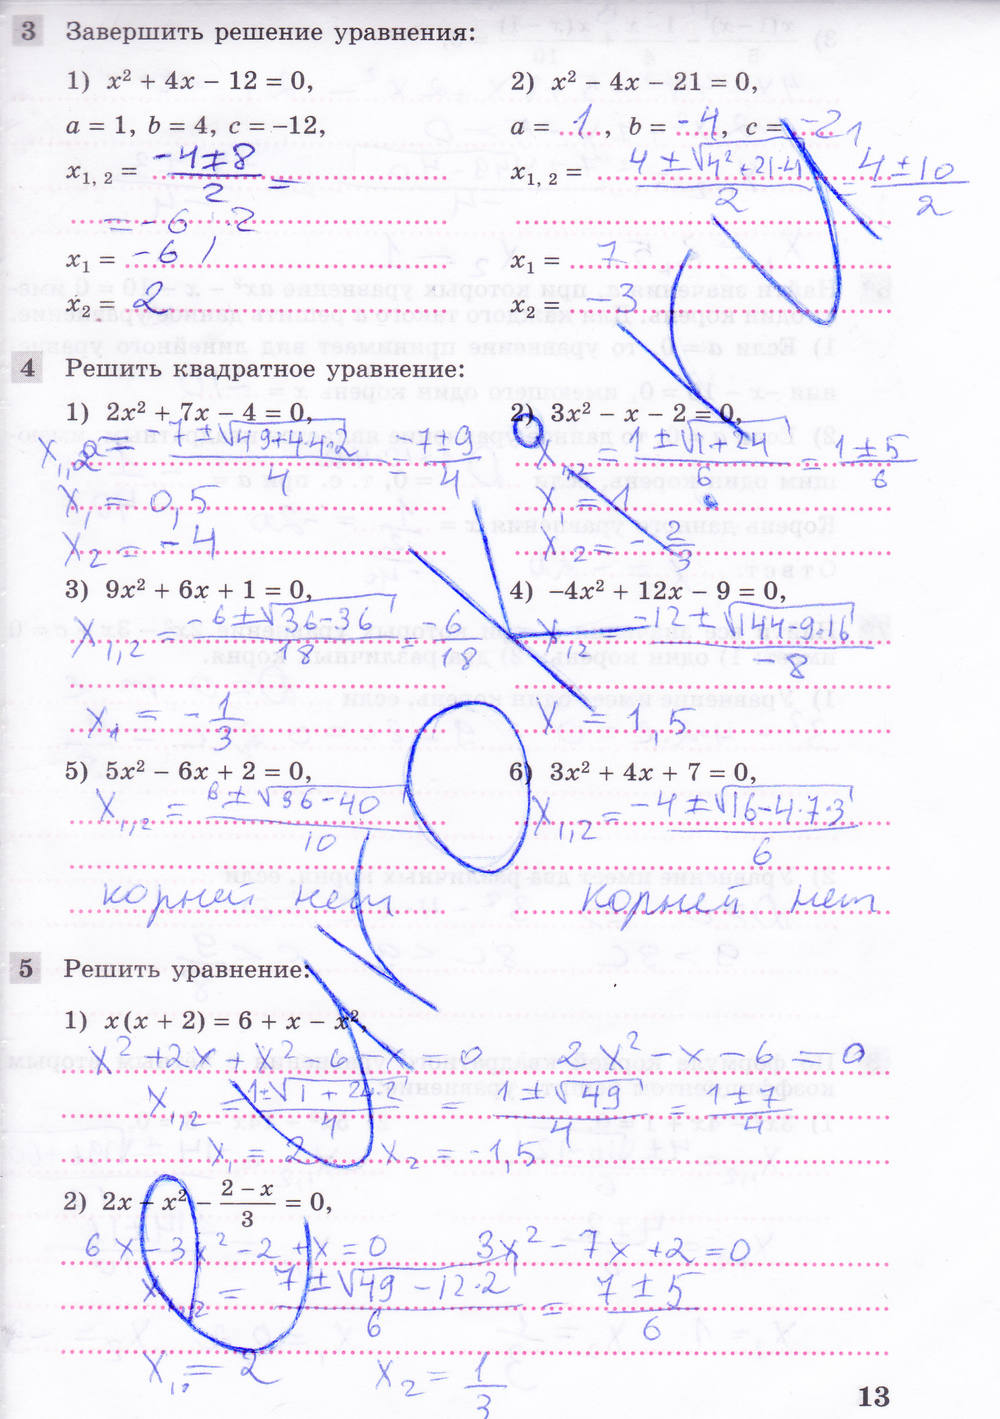 3 Завершить решение уравнения:
1) x² + 4x − 12 = 0,
a = 1, b = 4, c = −12,
x₁,₂ = (−4 ± 8)/2 =
= −6 ; 2
x₁ = −6
x₂ = 2
2) x² − 4x − 21 = 0,
a = 1, b = −4, c = −21
x₁,₂ = (4 ± √(4² + 21·4))/2 = (4 ± 10)/2
x₁ = 7
x₂ = −3
4 Решить квадратное уравнение:
1) 2x² + 7x − 4 = 0,
x₁,₂ = (−7 ± √(49+4·4·2))/4 = (−7 ± 9)/4
x₁ = 0,5
x₂ = −4
2) 3x² − x − 2 = 0,
x₁,₂ = (1 ± √(1+24))/6 = (1 ± 5)/6
x₁ = 1
x₂ = −2/3
3) 9x² + 6x + 1 = 0,
x₁,₂ = (−6 ± √(36−36))/18 = −6/18
x₁ = −1/3
4) −4x² + 12x − 9 = 0,
x₁,₂ = (−12 ± √(144−9·16))/−8
x = 1,5
5) 5x² − 6x + 2 = 0,
x₁,₂ = (6 ± √(36−40))/10
корней нет
6) 3x² + 4x + 7 = 0,
x₁,₂ = (−4 ± √(16−4·7·3))/6
корней нет
5 Решить уравнение:
1) x(x + 2) = 6 + x − x²,
x² + 2x + x² − 6 − x = 0 2x² + x − 6 = 0
x₁,₂ = (−1 ± √(1 + 24·2))/4 = (1 ± √49)/4 = (1 ± 7)/4
x₁ = 2 x₂ = −1,5
2) 2x − x² − (2 − x)/3 = 0,
6x − 3x² − 2 + x = 0 3x² − 7x + 2 = 0
x₁,₂ = (7 ± √(49 − 12·2))/6 = (7 ± 5)/6
x₁ = 2 x₂ = 1/3
13